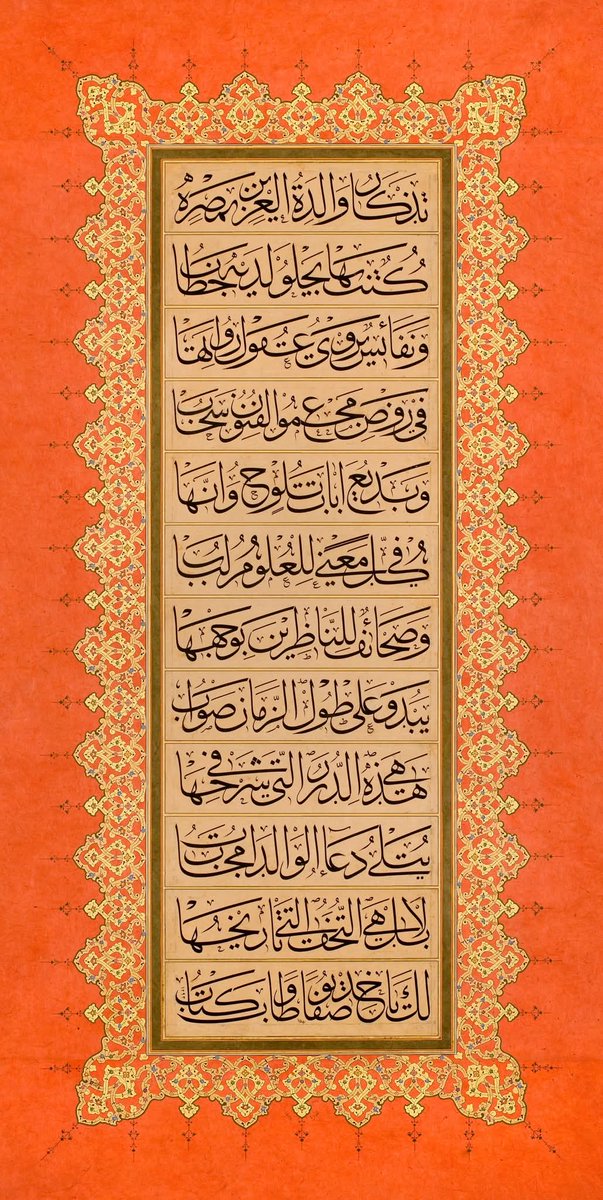 تذكار والدة العزيز بمصره
كُتب بها يجلو لديه خطاب
ونفائس يروى عقول
فى روض مجموع الفنون سحاب
وبديع ايات تلوح وانّها
فى كل معنى للعلوم لباب
وصحائف للناظرين بوجهها
يبدو على طول الزمان صواب
هذه الدرر التى فى شرحها
يتلى دعاء الوالد مجاب
بل هى التحف التى تاريخها
لك ياخديو صفا وطاب كتاب